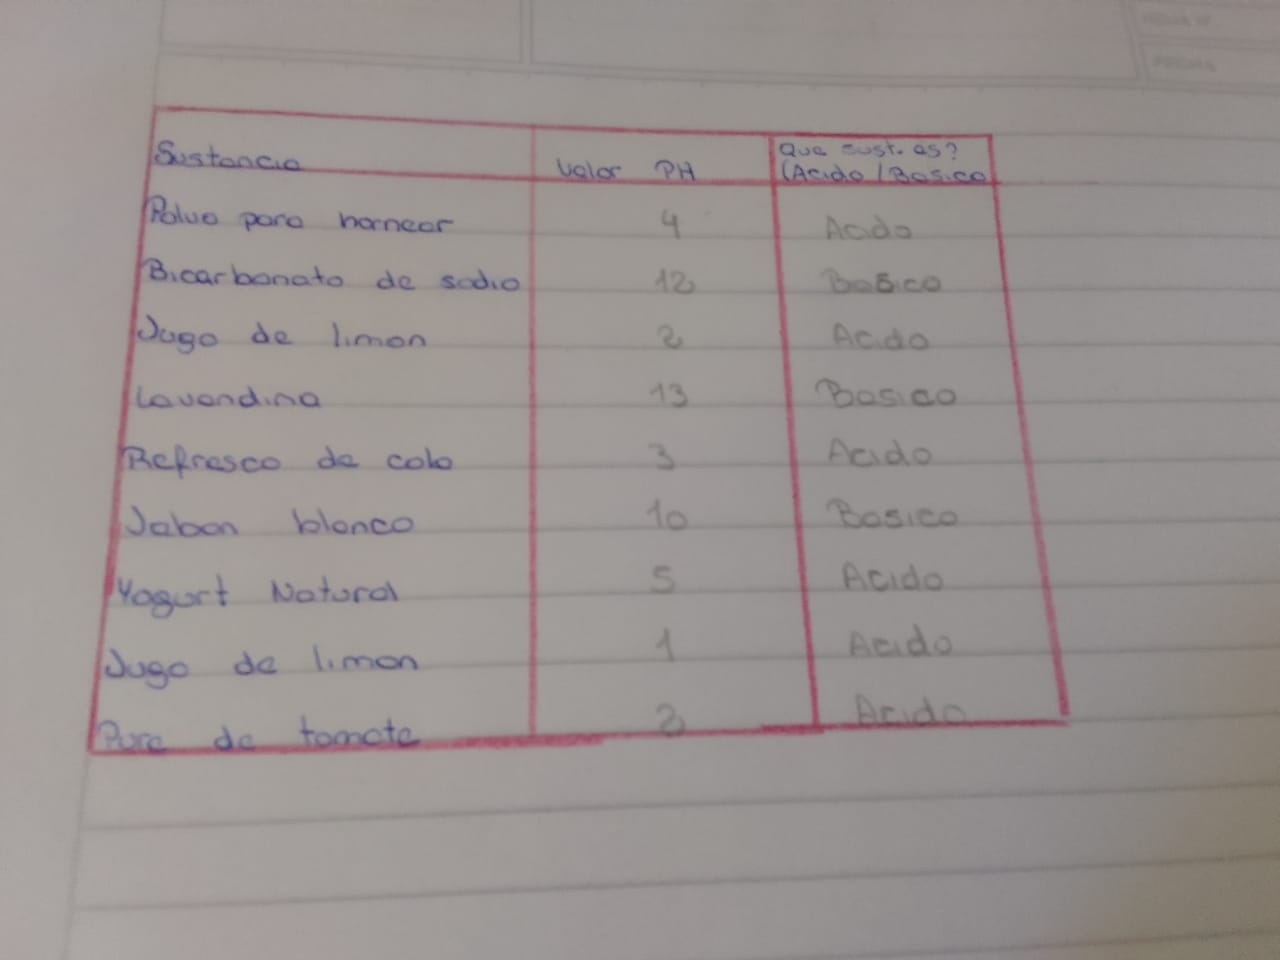 Sustancia Valor PH Que sust. es?
(Acido / Basico
Polvo para hornear 4 Acido
Bicarbonato de sodio 12 Basico
Jugo de limon 2 Acido
Lavandina 13 Basico
Refresco de cola 3 Acido
Jabon blanco 10 Basico
Yogurt Natural 5 Acido
Jugo de limon 1 Acido
Pure de tomate 2 Acido